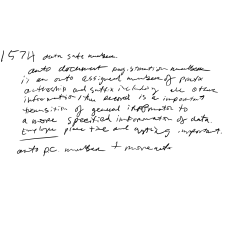 1574 data safe number
auto document registration number
is an auto assigned number of prefix
authorship and suffix including use other
information the record is a important
transition of general information to
a more specified information of data.
place time are important.
auto pc. number + more auto